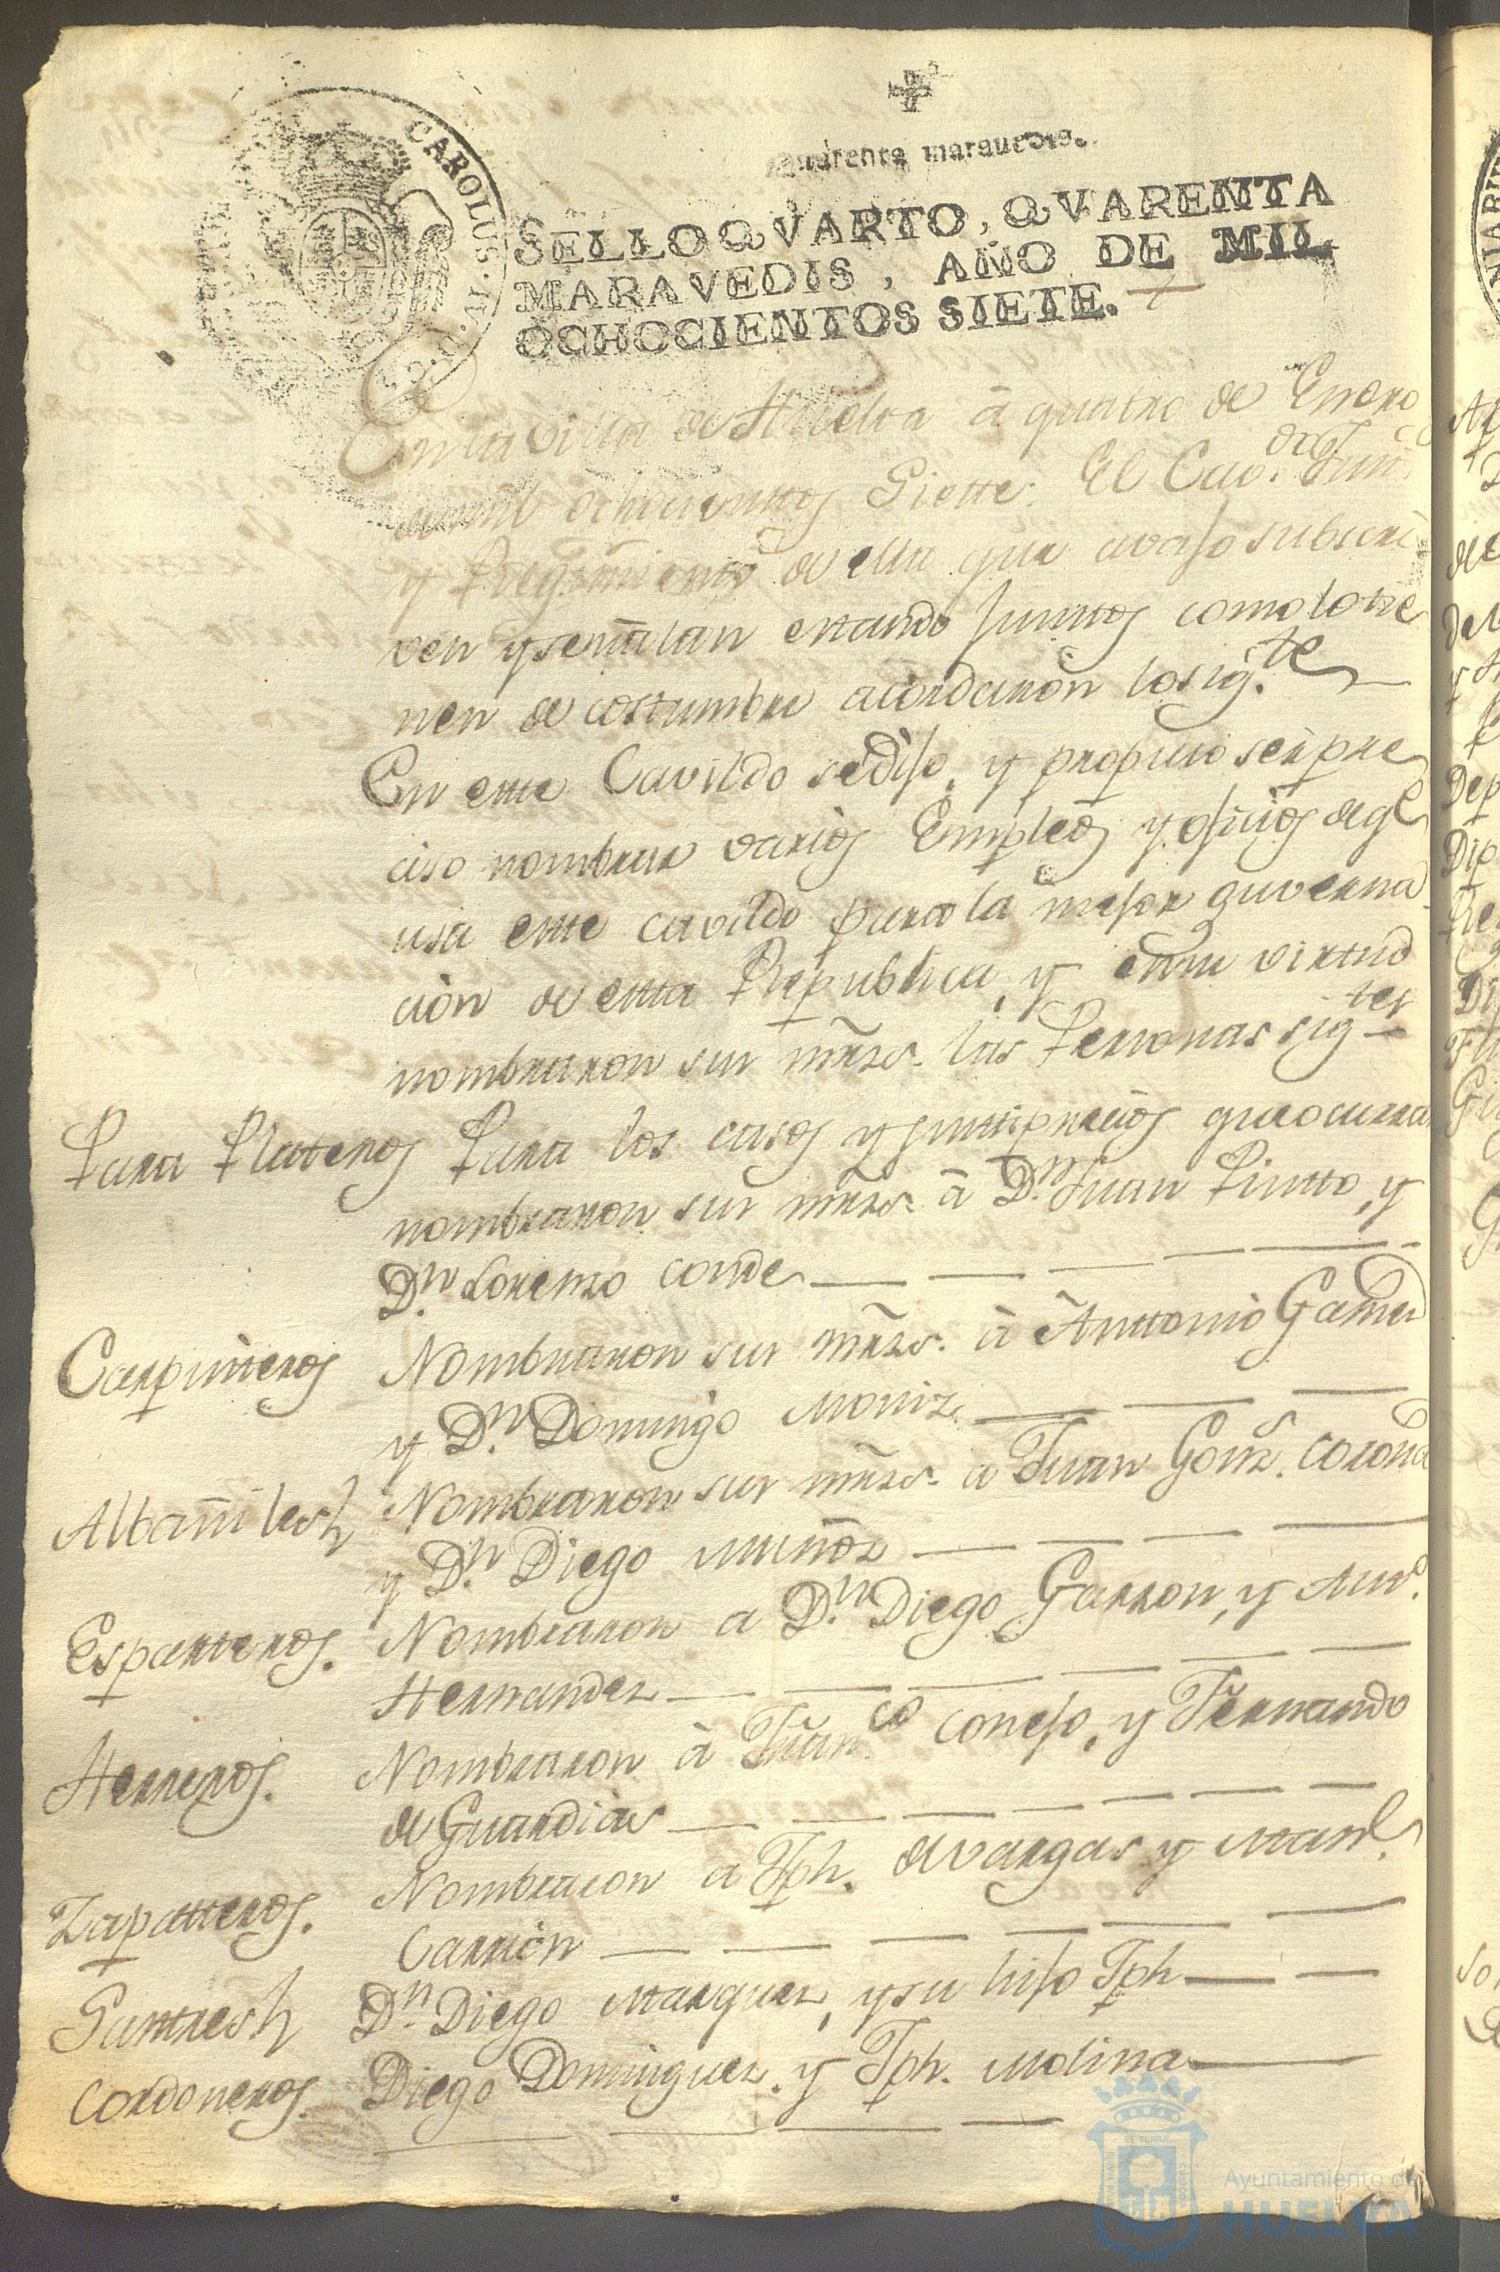 Quarenta maravedis.
CAROLUS. IV. D. G.
SELLO QVARTO, QVARENTA
MARAVEDIS, AÑO DE MIL
OCHOCIENTOS SIETE.
En la Villa de Huelva â quatro de Enero
de mil ochocientos Siette. El Cav.do Just.
y Regimiento de ella que avajo subscri
ven y señalan estando Junttos como lo tie
nen de costumbre acordaron lo sig.te
En este Cavildo se dijo, y propuso ser pre
ciso nombrar varios Empleos y oficios de q.e
usa este cavildo para la mejor guverna
ción de esta Republica, y en su virtud
nombraron sus mrzs. las Personas sig.tes
Para Plateros Para los casos y justtiprecios que ocurran
nombraron sus mrzs. â D.n Juan Pintto, y
D.n Lorenzo conde
Carpinteros Nombraron sus mrzs. â Anttonio Gamez
y D.n Domingo Moniz
Albañiles Nombraron sus mrzs. a Juan Gonz.s corona
y D.n Diego Muñoz
Esparteros. Nombraron a D.n Diego Garzon, y
Hernandez
Herreros. Nombraron â Fran.co conejo, y Fernando
de Guardias
Zapatteros. Nombraron a Jph. de Vargas y Man.l
Carrión
Sastres D.n Diego Marquez, y su hijo Jph
Cordoneros. Diego Dominguez. y Jph. Molina
Ayuntamiento de
HUELVA